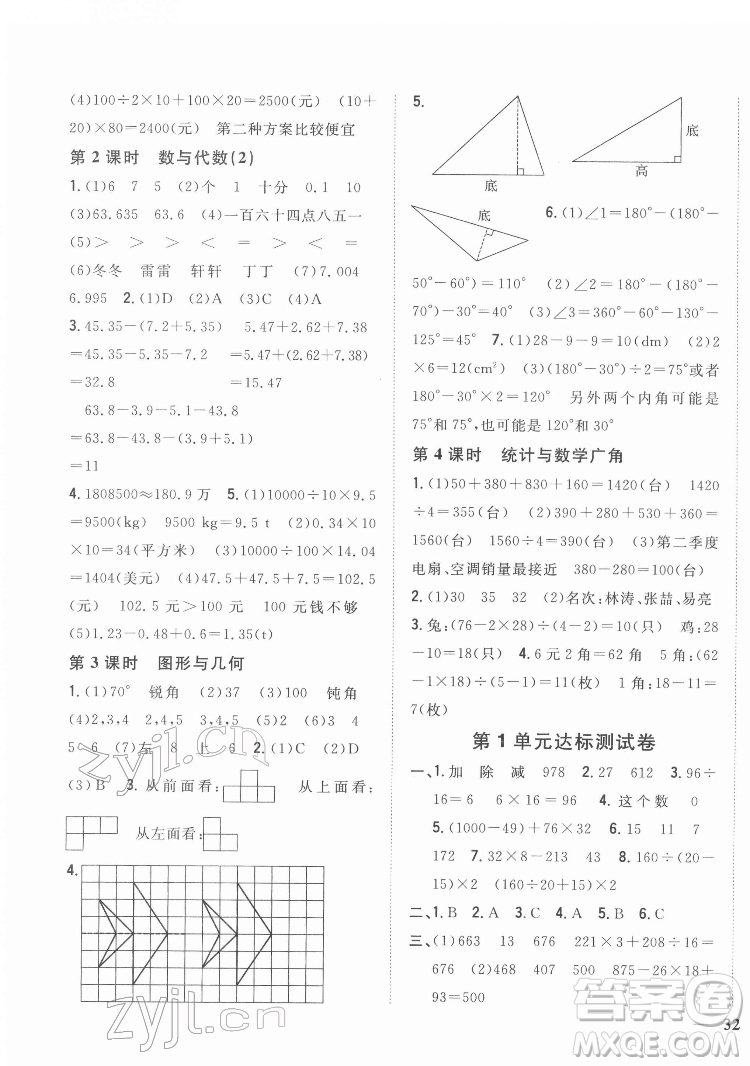 (4)100÷2×10+100×20=2500(元) (10+
20)×80=2400(元) 第二种方案比较便宜
第 2 课时 数与代数(2)
1.(1)6 7 5 (2)个 1 十分 0.1 10
(3)63.635 63.6 (4)一百六十四点八五一
(5)> > > = > < =
(6)冬冬 雷雷 轩轩 丁丁 (7)7.004
6.995 2.(1)D (2)A (3)C (4)A
3.45.35-(7.2+5.35) 5.47+2.62+7.38
=45.35-5.35-7.2 =5.47+(2.62+7.38)
=32.8 =15.47
63.8-3.9-5.1-43.8
=63.8-43.8-(3.9+5.1)
=11
4.1808500≈180.9 万 5.(1)10000÷10×9.5
=9500(kg) 9500 kg=9.5 t (2)340÷100×
10=34(平方米) (3)10000÷100×14.04
=1404(美元) (4)47.5+12.5+42.5=102.5
(元) 102.5元>100 元 100 元钱不够
(5)1.23-0.48+0.6=1.35(t)
第 3 课时 图形与几何
1.(1)70° 锐角 (2)37 (3)100 钝角
(4)2,3,4 3,4,5 (5)6 (6)3 4
5 6 (7)左 8 上 6 2.(1)C (2)D
(3)B 3.从前面看: 从上面看:
从左面看:
4.
5.
底
底
高
底
6.(1)∠1=180°-(180°-
50°-60°)=110° (2)∠2=180°-(180°-
70°)-30°=40° (3)∠3=360°-90°-100°-
125°=45° 7.(1)28-9-9=10(dm) (2)2
×6=12(cm²) (3)(180°-30°)÷2=75°或者
180°-30°×2=120° 另外两个内角可能是
75°和 75°,也可能是 120°和 30°
第 4 课时 统计与数学广角
1.(1)50+380+830+160=1420(台) 1420
÷4=355(台) (2)200+280+720+360=
1560(台) 1560÷4=390(台) (3)第二季度
电扇、空调销量最接近 380-280=100(台)
2.(1)30 35 32 (2)名次:林涛、张喆、易亮
3.兔:(76-2×28)÷(4-2)=10(只) 鸡:28
-10=18(只) 4.6 元=60 角 1 元=10 角 (52
-1×10)÷(10-1)=8(枚) 1 角:10-8
7(枚)
第 1 单元达标测试卷
一、1.加 除 减 978 2.27 612 3.96÷
16=6 6×16=96 4.这个数 0
5.(1000-49)+76×32 6.15 11 7.
172 8.12 20 9.60 10.(241-226
÷15)×2 (226+20÷15)×2
二、1.B 2.A 3.A 4.C 5.B
三、1.(1)663 13 676 221×3+208÷16=
676 (2)468 407 500 468+(535-
9)=500
32
答案圈
MXQE.COM
zyjl.cn